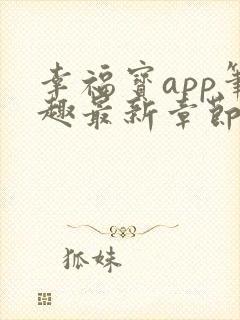 幸福宝app笔
趣最新章节
狐妹